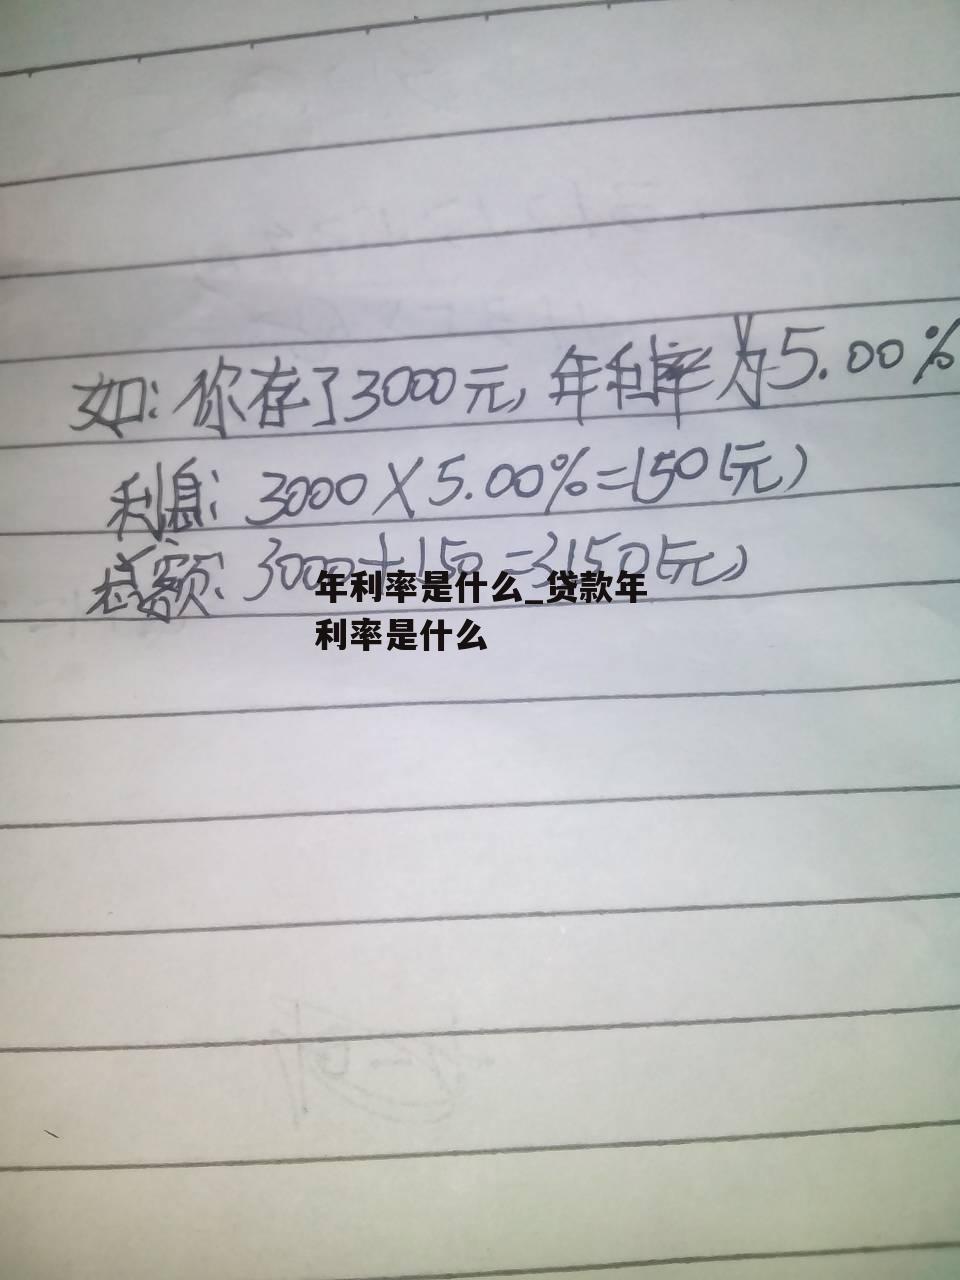 如:你存了3000元,年利率为5.00%
利息:3000×5.00%=150(元)
总额:3000+150=3150(元)
年利率是什么_贷款年
利率是什么